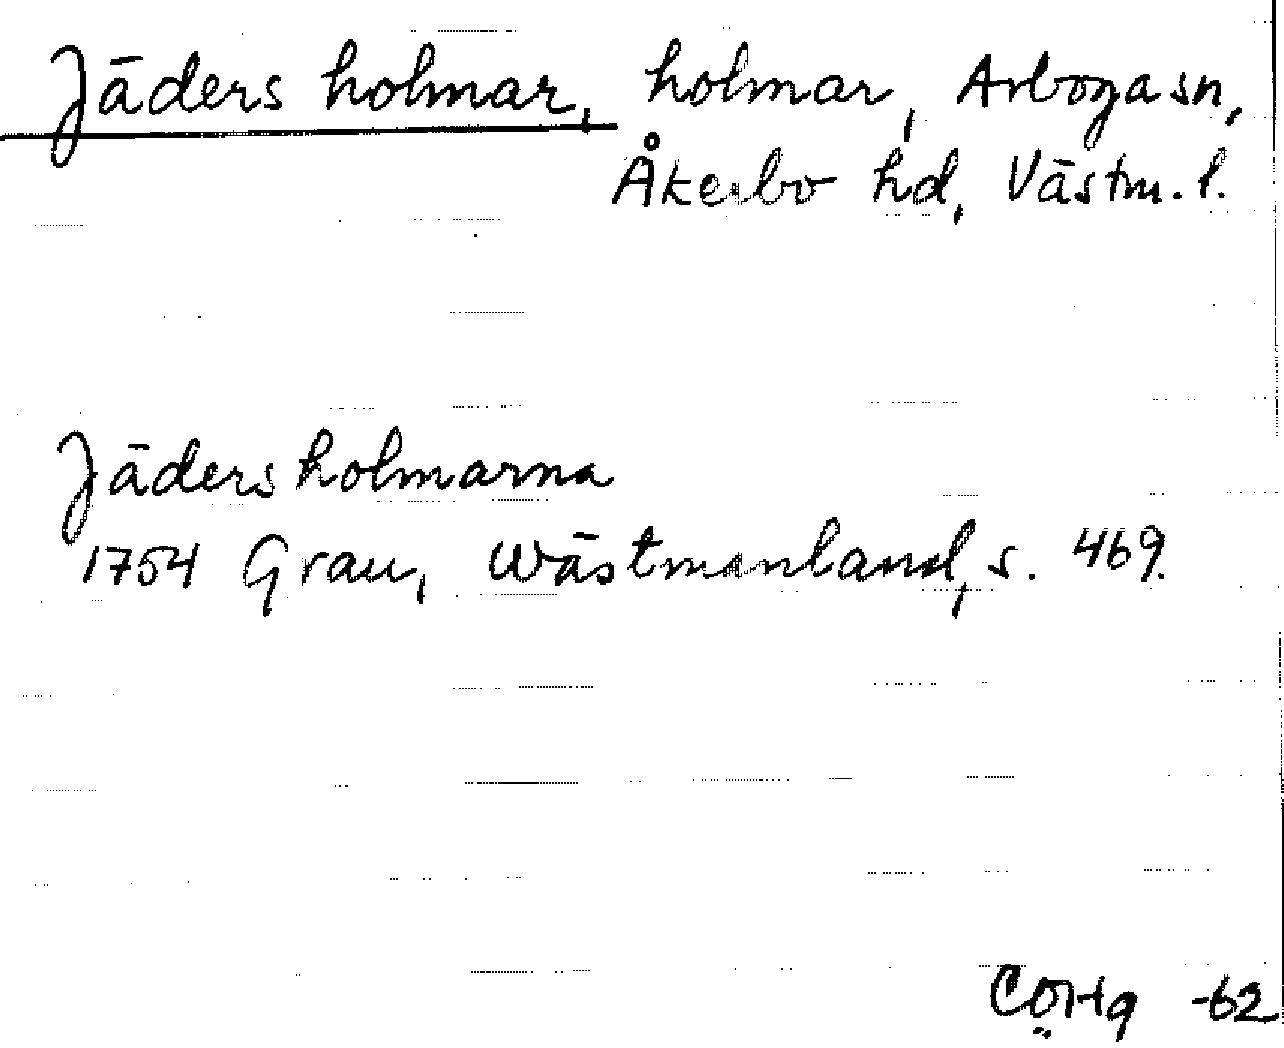 Jäders holmar, holmar, Arboga sn,
Åkerbo hd, Västm. l.
Jäders holmarna
1754 Grau, Wästmanland, s. 469.
CÖHg -62